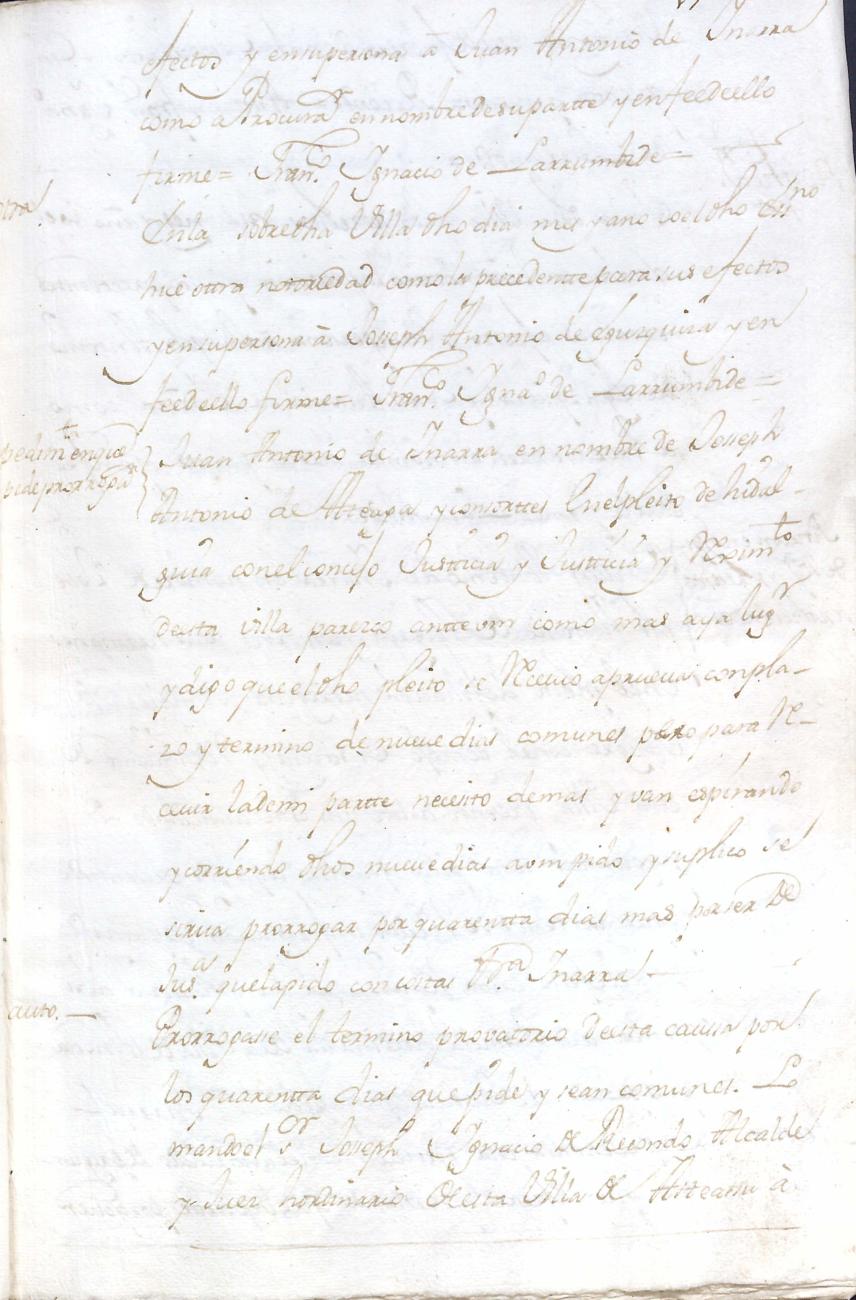 efectos y en su persona â Juan Antonio de Ynarra
como a Procurar en nombre de su partte y en fee de ello
firme= Franco Ygnacio de Larrumbide=
otra
En la sobredha Villa dho dia mes y año yo el dho Essno
hice ottra notoriedad como la precedentte para sus efectos
y en su persona â Joseph Antonio de Eguzquiza y en
fee de ello firme= Franco Ygnao de Larrumbide=
pedimto en que
pide prorrogon
Juan Antonio de Ynarra en nombre de Joseph
Antonio de Alzaga y consorttes En el pleito de hidal-
guia con el concejo Justicia y Justicia y Rejimto
desta villa parezco antte vm como mas aya lugr
y digo que el dho pleito se Recivio a prueva con pla-
zo y termino de nueve dias comunes pero para Re-
cevir la de mi partte necesito de mas y van espirando
y corriendo dhos nueve dias a vm pido y suplico se
sirva prorrogar por quarentta dias mas por ser de
Jusa que la pido con costas Ynarra
auto.
Prorrogasse el termino provatorio desta caussa por
los quarentta dias que pide y sean comunes. Lo
mando el sor Joseph Ygnacio de Recondo Alcalde
y Juez hordinario de esta Villa de Astteasu â